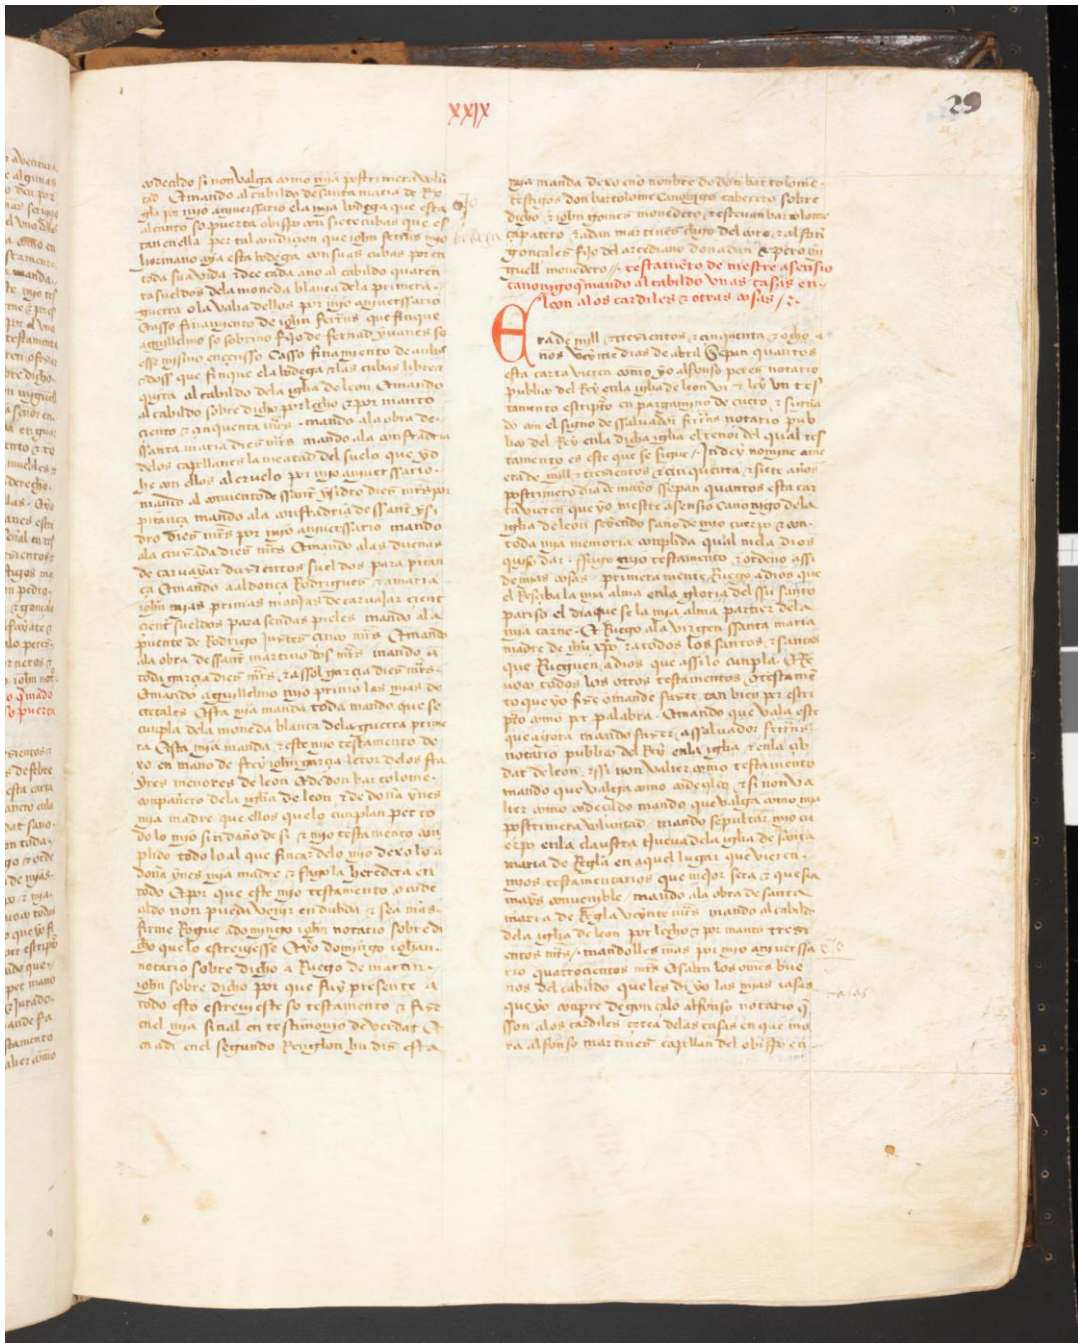 XXIX
29
codecildo si non valga como mia postrimera volũ
tad Et mando al cabildo de santa maria de Re
gla por mio aniuerssario e la mia bodega que esta
al canto so puerta obispo con siete cubas que es
tan en ella por tal condiçion que iohn ferrñs mio
hermano aya esta bodega con suas cubas por en
toda su avida & dee cada año al cabildo quaren
ta sueldos dela moneda blanca dela primera
guerra o la valia dellos por mio aniuerssario
Et asso finamiento de iohn ferrñs que finque
a guillelmo so sobrino fijo de fernad yuanes so
esse mismo ençensso Et asso finamiento de anbos
& doss que finque e la bodega & las cubas libre &
quita al cabildo dela igłia de leon Et mando
al cabildo sobre dicho por lecho & por manto
ciento & çinquenta mr̃s mando ala obra de
ssanta maria diez mr̃s mando ala confradria
delos capellanes la meatad del suelo que yo
he con ellos al eruelo por mio aniuerssario
mando al conuento de ssant ysidro diez mr̃s por
pitança mando ala confradria de ssant ysi
dro diez mr̃s por mio aniuerssario mando
ala diez mr̃s Et mando alas duenas
de caruayar duzientos sueldos para pitan
ça Et mando a aldonça Rodrigues & a maria
iohn mias primas monjas de caruajar cient
cient sueldos para sendas pieles mando ala
puente de Rodrigo iustes cinco mr̃s Et mando
ala obra de ssant martino dos mr̃s mando a
toda garçia diez mr̃s & a ssol garçia diez mr̃s
Et mando a guillelmo mio primo las mias de
cretales Esta mia manda toda mando que se
cunpla dela moneda blanca dela guerra prime
ra Esta mia manda & este mio testamento de
xo en mano de frey iohn garçia letor delos fra
yres menores de leon & de don bartolome
conpañero dela iglia de leon & de doña ynes
mia madre que ellos que lo cunplan per to
do lo mio sin daño de si & mio testamento con
plido todo lo al que fincar delo mio dexo lo a
doña ynes mia madre & fago la heredera en
todo Et por que este mio testamento o code
cildo non pueda venir en dubda & sea mas
firme Rogue a domingo iohn notario sobre di
cho que lo escreuiesse Et yo domingo iohan
notario sobre dicho a Ruego de martin
iohn sobre dicho por que fuy presente a
todo esto escreui este so testamento & fize
enel mia sinal en testimonio de verdat Et
en adi enel segundo Renglon hu diz esta
mia manda dexo enno nonbre de don bartolome
testigos don bartolome canonigo caberero sobre
dicho & iohn gomes monedero & esteuan bartolome
çapatero & adan martines clerigo del coro & alfon
gonçales fijo del arcediano don adan & pero mi
guell monedero // testamẽto de mestre asensio
canonigo q̃ mando al cabildo vnas casas en
leon alos cardiles & otras cosas
Era de mill & trezientos & cinquenta & ocho a
ños veynte dias de abril Sepan quantos
esta carta vieren como yo alfonso peres notario
publico del Rey enla iglia de leon vi & ley vn tes
tamento escripto en pargamino de cuero & signa
do con el signo de ssaluador ferrñs notario pub
lico del Rey enla dicha iglia el tenor del qual tes
tamento es este que se sigue / In dey nomine ame
era de mill & trezientos & cinquenta & siete años
postrimero dia de mayo ssepan quantos esta car
ta vieren que yo mestre asensio canonigo dela
iglia de leon seyendo sano de mio cuerpo & con
toda mia memoria conplida qual mela dios
quiso dar ffago mio testamento & ordeno assi
de mias cosas primera mente Ruego a dios que
el Resçiba la mia alma enla gloria del ssu santo
pariso el dia que se la mia alma partier dela
mia carne Et Ruego ala virgen ssanta maria
madre de ihu xp̃o & a todos los santos & santas
que Rueguen a dios que assi lo cunpla Et Re
uoco todos los otros testamentos o testamẽ
to que yo fize o mande fazer tan bien por escri
pto como por palabra Et mando que vala este
que agora mando fazer a ssaluador ferrñs
notario publico del Rey enla iglia & enla çib
dat de leon & ssi non valier como testamento
mando que valga como codeçilo & si non va
lier como codecildo mando que valga como mia
postrimera voluntad mando sepultar mio cu
erpo enla claustra nueua dela iglia de santa
maria de Regla en aquel lugar que vieren
mios testamentarios que mejor sera & que sia
mays conuenible mando ala obra de santa
maria de Regla veynte mr̃s mando al cabildo
dela iglia de leon por lecho & por manto trezi
entos mr̃s / mandolles mas por mio aniuerssa
rio quatrocientos mr̃s Et salen los omes bue
nos del cabildo que les di yo las mias casas
que yo conpre de gonçalo alfonso notario q̃
sson alos cardiles çerca delas casas en que mo
ra alfonso martines capellan del obispo en
bodega
casas